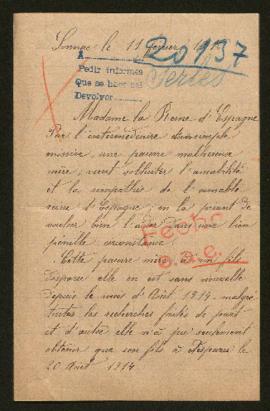 Sonnac le 11 Janvier 191
20137
A
Pedir informes
Que se hace
Devolver
Series
Madame la Reine d'Espagne
Par l'intermédiaire
missive, une pauvre malheureuse
mère, vient solliciter l'amabilité
et la sympathie de l'aimable
reine d'Espagne; en la priant de
vouloir bien l'aider dans une bien
pénible circonstance
Fecho
Cette pauvre mère a un fils
disparu elle en est sans nouvelle
depuis le mois d'Août 1914. malgré
toutes les recherches faites de part
et d'autre elle n'a pu seulement
obtenir que son fils à disparu le
20 Août 1914